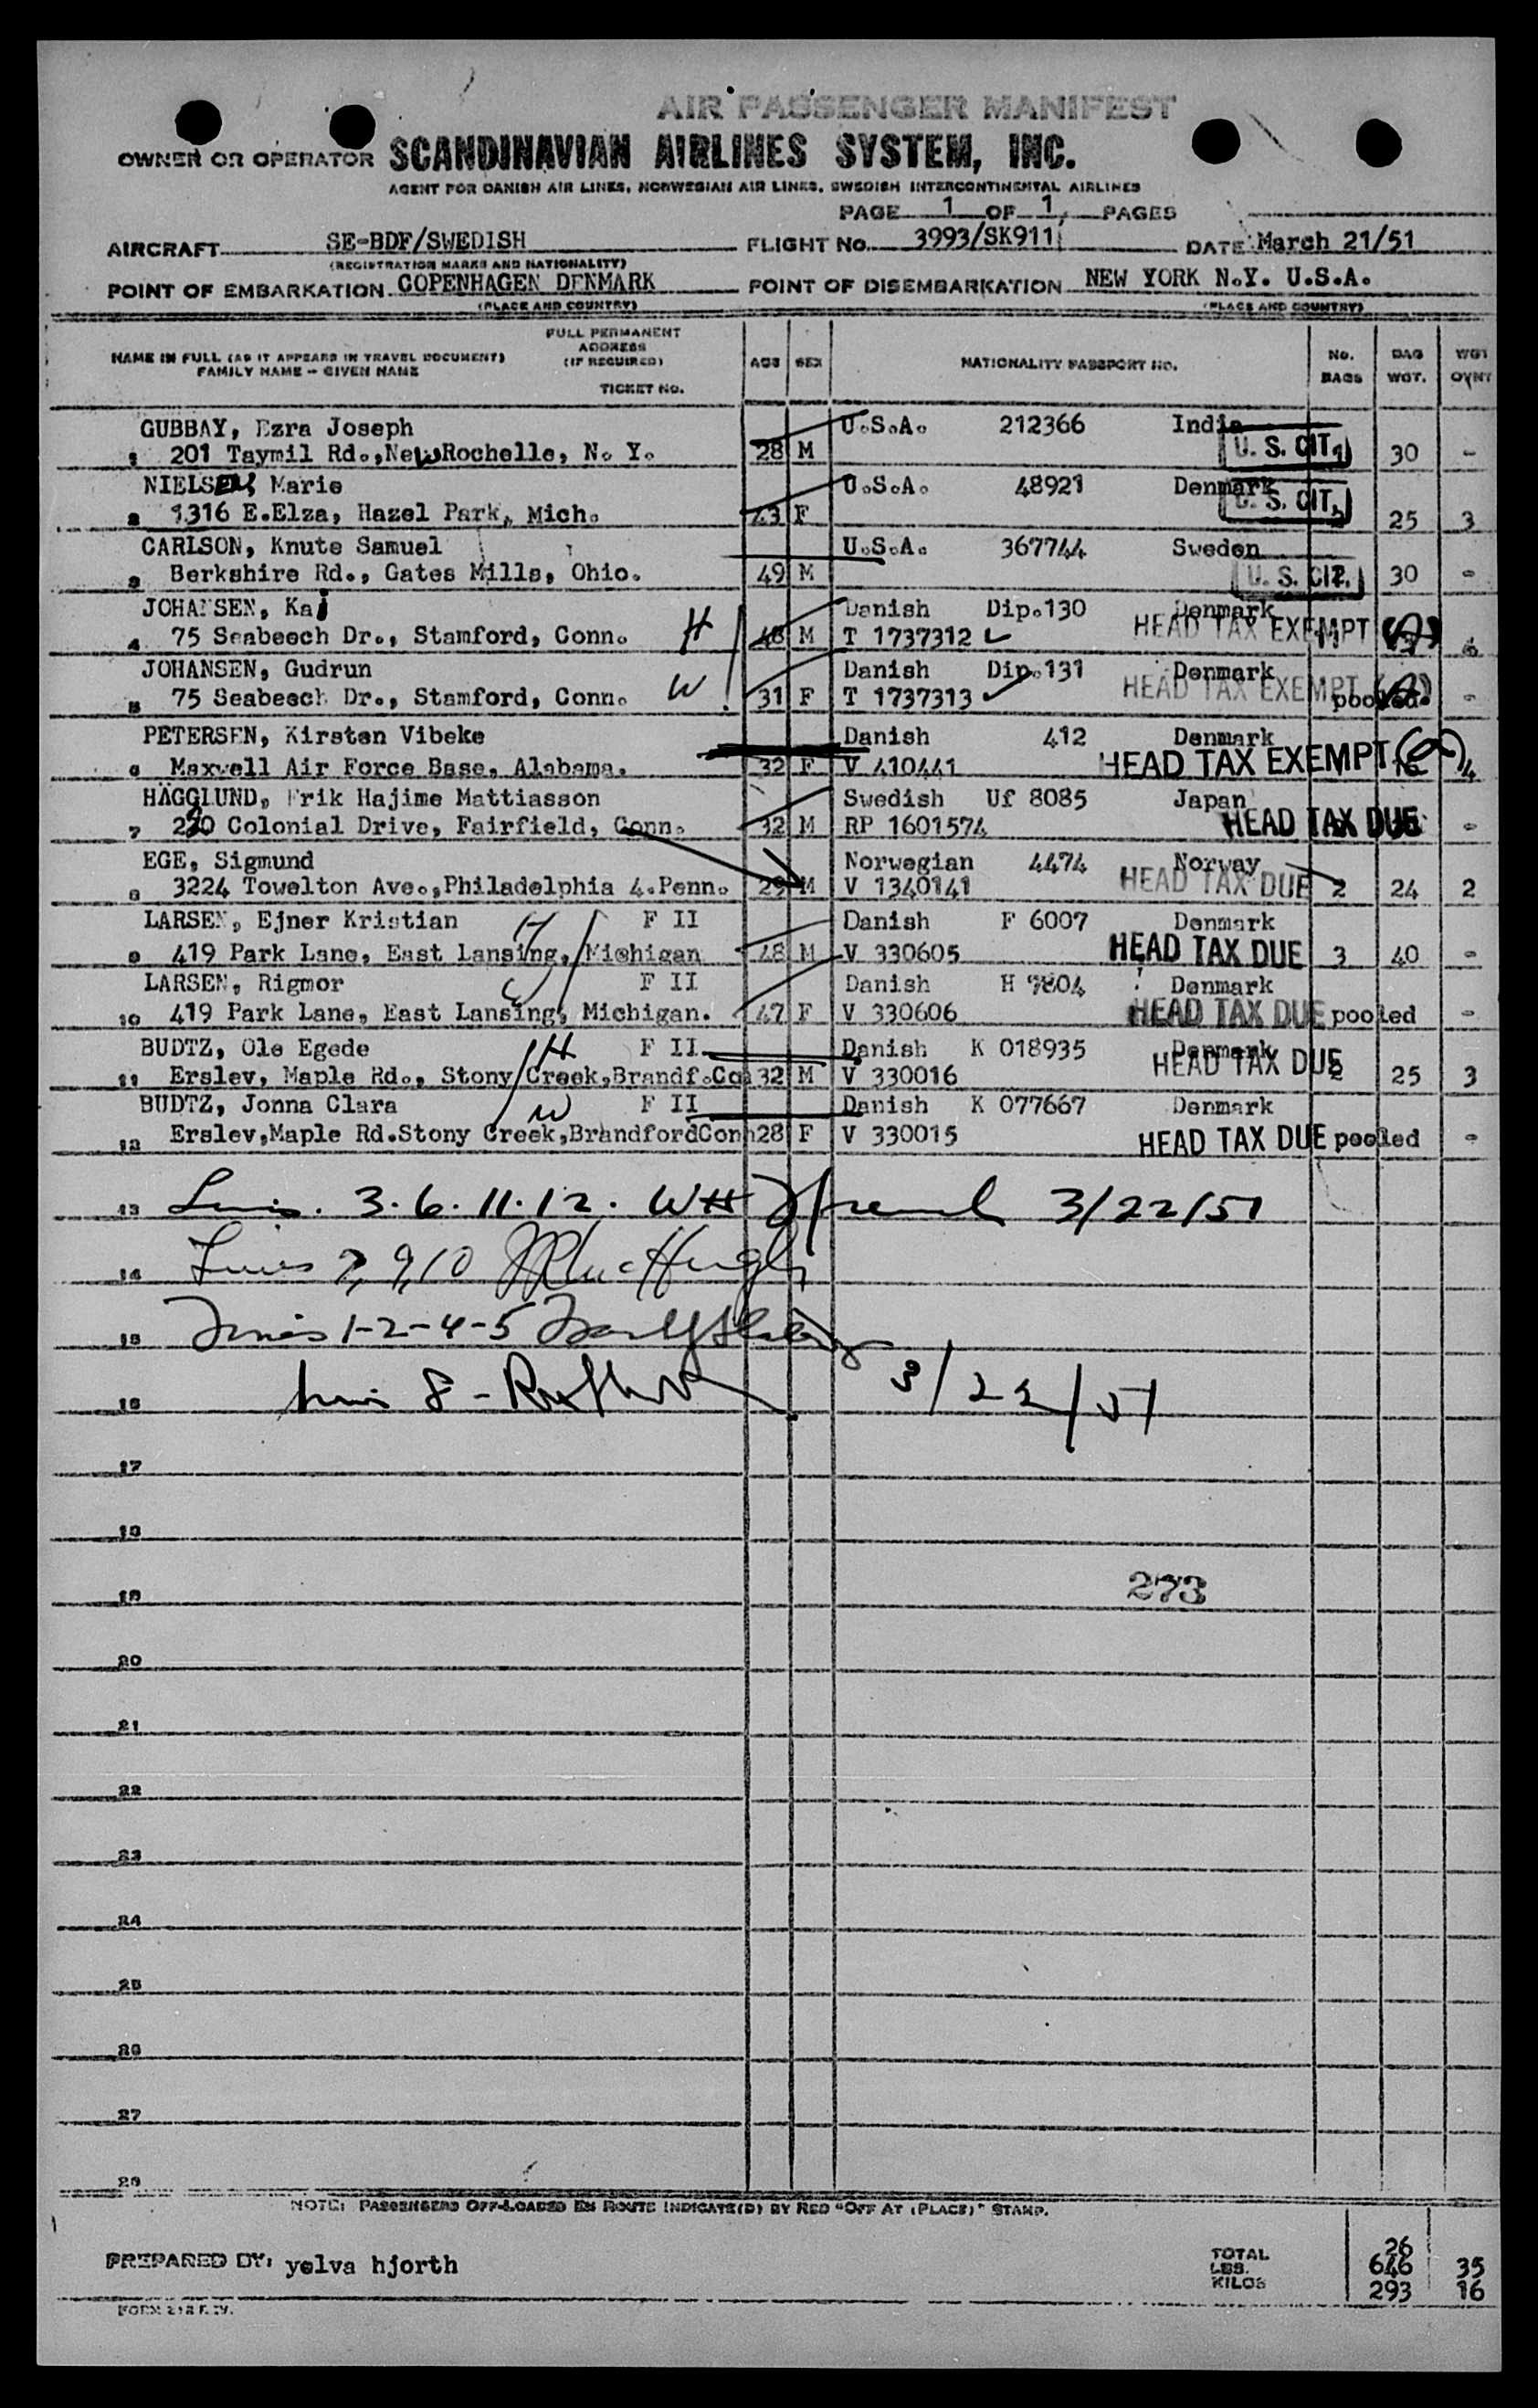 AIR PASSENGER MANIFEST
OWNER OR OPERATOR SCANDINAVIAN AIRLINES SYSTEM, INC.
AGENT FOR DANISH AIR LINES, NORWEGIAN AIR LINES, SWEDISH INTERCONTINENTAL AIRLINES
PAGE 1 OF 1, PAGES
AIRCRAFT SE-BDF/SWEDISH FLIGHT No. 3993/SK911 DATE March 21/51
(REGISTRATION MARKS AND NATIONALITY)
POINT OF EMBARKATION COPENHAGEN DENMARK POINT OF DISEMBARKATION NEW YORK N.Y. U.S.A.
(PLACE AND COUNTRY) (PLACE AND COUNTRY)
NAME IN FULL (AS IT APPEARS IN TRAVEL DOCUMENT) FULL PERMANENT ADDRESS (IF REQUIRED) AGE SEX NATIONALITY PASSPORT NO. No. BAGS BAG WGT. WGT OVNT
FAMILY NAME - GIVEN NAME
TICKET No.
GUBBAY, Ezra Joseph U.S.A. 212366 India
1 201 Taymil Rd., New Rochelle, N. Y. 28 M U. S. CIT. 30 -
NIELSEN, Marie U.S.A. 48921 Denmark
2 1316 E.Elza, Hazel Park, Mich. 43 F U. S. CIT. 25 3
CARLSON, Knute Samuel U.S.A. 367744 Sweden
3 Berkshire Rd., Gates Mills, Ohio. 49 M U. S. CIT. 30 -
JOHANSEN, Kaj Danish Dip.130 Denmark
4 75 Seabeech Dr., Stamford, Conn. H M T 1737312 HEAD TAX EXEMPT
JOHANSEN, Gudrun Danish Dip.131 Denmark
5 75 Seabeech Dr., Stamford, Conn. W 31 F T 1737313 HEAD TAX EXEMPT pooled -
PETERSEN, Kirsten Vibeke Danish 412 Denmark
6 Maxwell Air Force Base, Alabama. 32 F V 410441 HEAD TAX EXEMPT 4
HÄGGLUND, Erik Hajime Mattiasson Swedish Uf 8085 Japan
7 Colonial Drive, Fairfield, Conn. 32 M RP 1601574 HEAD TAX DUE -
EGE, Sigmund Norwegian 4474 Norway
8 3224 Towelton Ave.,Philadelphia 4.Penn. 29 M V 1340141 HEAD TAX DUE 2 24 2
LARSEN, Ejner Kristian H F II Danish F 6007 Denmark
9 419 Park Lane, East Lansing, Michigan 48 M V 330605 HEAD TAX DUE 3 40 -
LARSEN, Rigmor W F II Danish H 9804 Denmark
10 419 Park Lane, East Lansing, Michigan. 47 F V 330606 HEAD TAX DUE pooled -
BUDTZ, Ole Egede H F II Danish K 018935 Denmark
11 Erslev, Maple Rd., Stony Creek,Brandf.Con 32 M V 330016 HEAD TAX DUE 2 25 3
BUDTZ, Jonna Clara W F II Danish K 077667 Denmark
12 Erslev,Maple Rd.Stony Creek,BrandfordConn 28 F V 330015 HEAD TAX DUE pooled -
13 Lines. 3.6.11.12. WH 3/22/51
14 Lines 7, 9, 10
15 Lines 1-2-4-5
16 Line 8 - 3/22/51
17
18
19 273
20
21
22
23
24
25
26
27
28
NOTE: PASSENGERS OFF-LOADED EN ROUTE INDICATE(D) BY RED "OFF AT (PLACE)" STAMP.
PREPARED BY: yelva hjorth
TOTAL 26
LBS. 646 35
KILOS 293 16
FORM 218 F. IV.